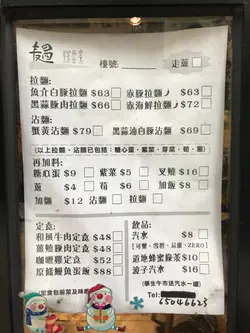 檯號: 走蔥
拉麵:
魚介白豚拉麵 $63 赤豚拉麵 $63
黑蒜豚肉拉麵 $66 赤海鮮拉麵 $72
沾麵:
蟹黃沾麵 $79 黑蒜油白豚沾麵 $69
(以上拉麵、沾麵已包括：糖心蛋、紫菜、芽菜、筍、蔥)
再加料:
糖心蛋 $9 紫菜 $5 叉燒 $16
蔥 $4 筍 $6 加飯 $8
加麵 $12 沾麵 拉麵
定食: 飲品:
和風牛肉定食 $48 汽水 $8
薑燒豚肉定食 $48 [可樂、雪碧、忌廉、ZERO]
咖喱雞定食 $52 道地蜂蜜綠茶 $10
原條鰻魚蛋飯 $88 波子汽水 $16
(學生午市送汽水一罐)
Tel:
65046623